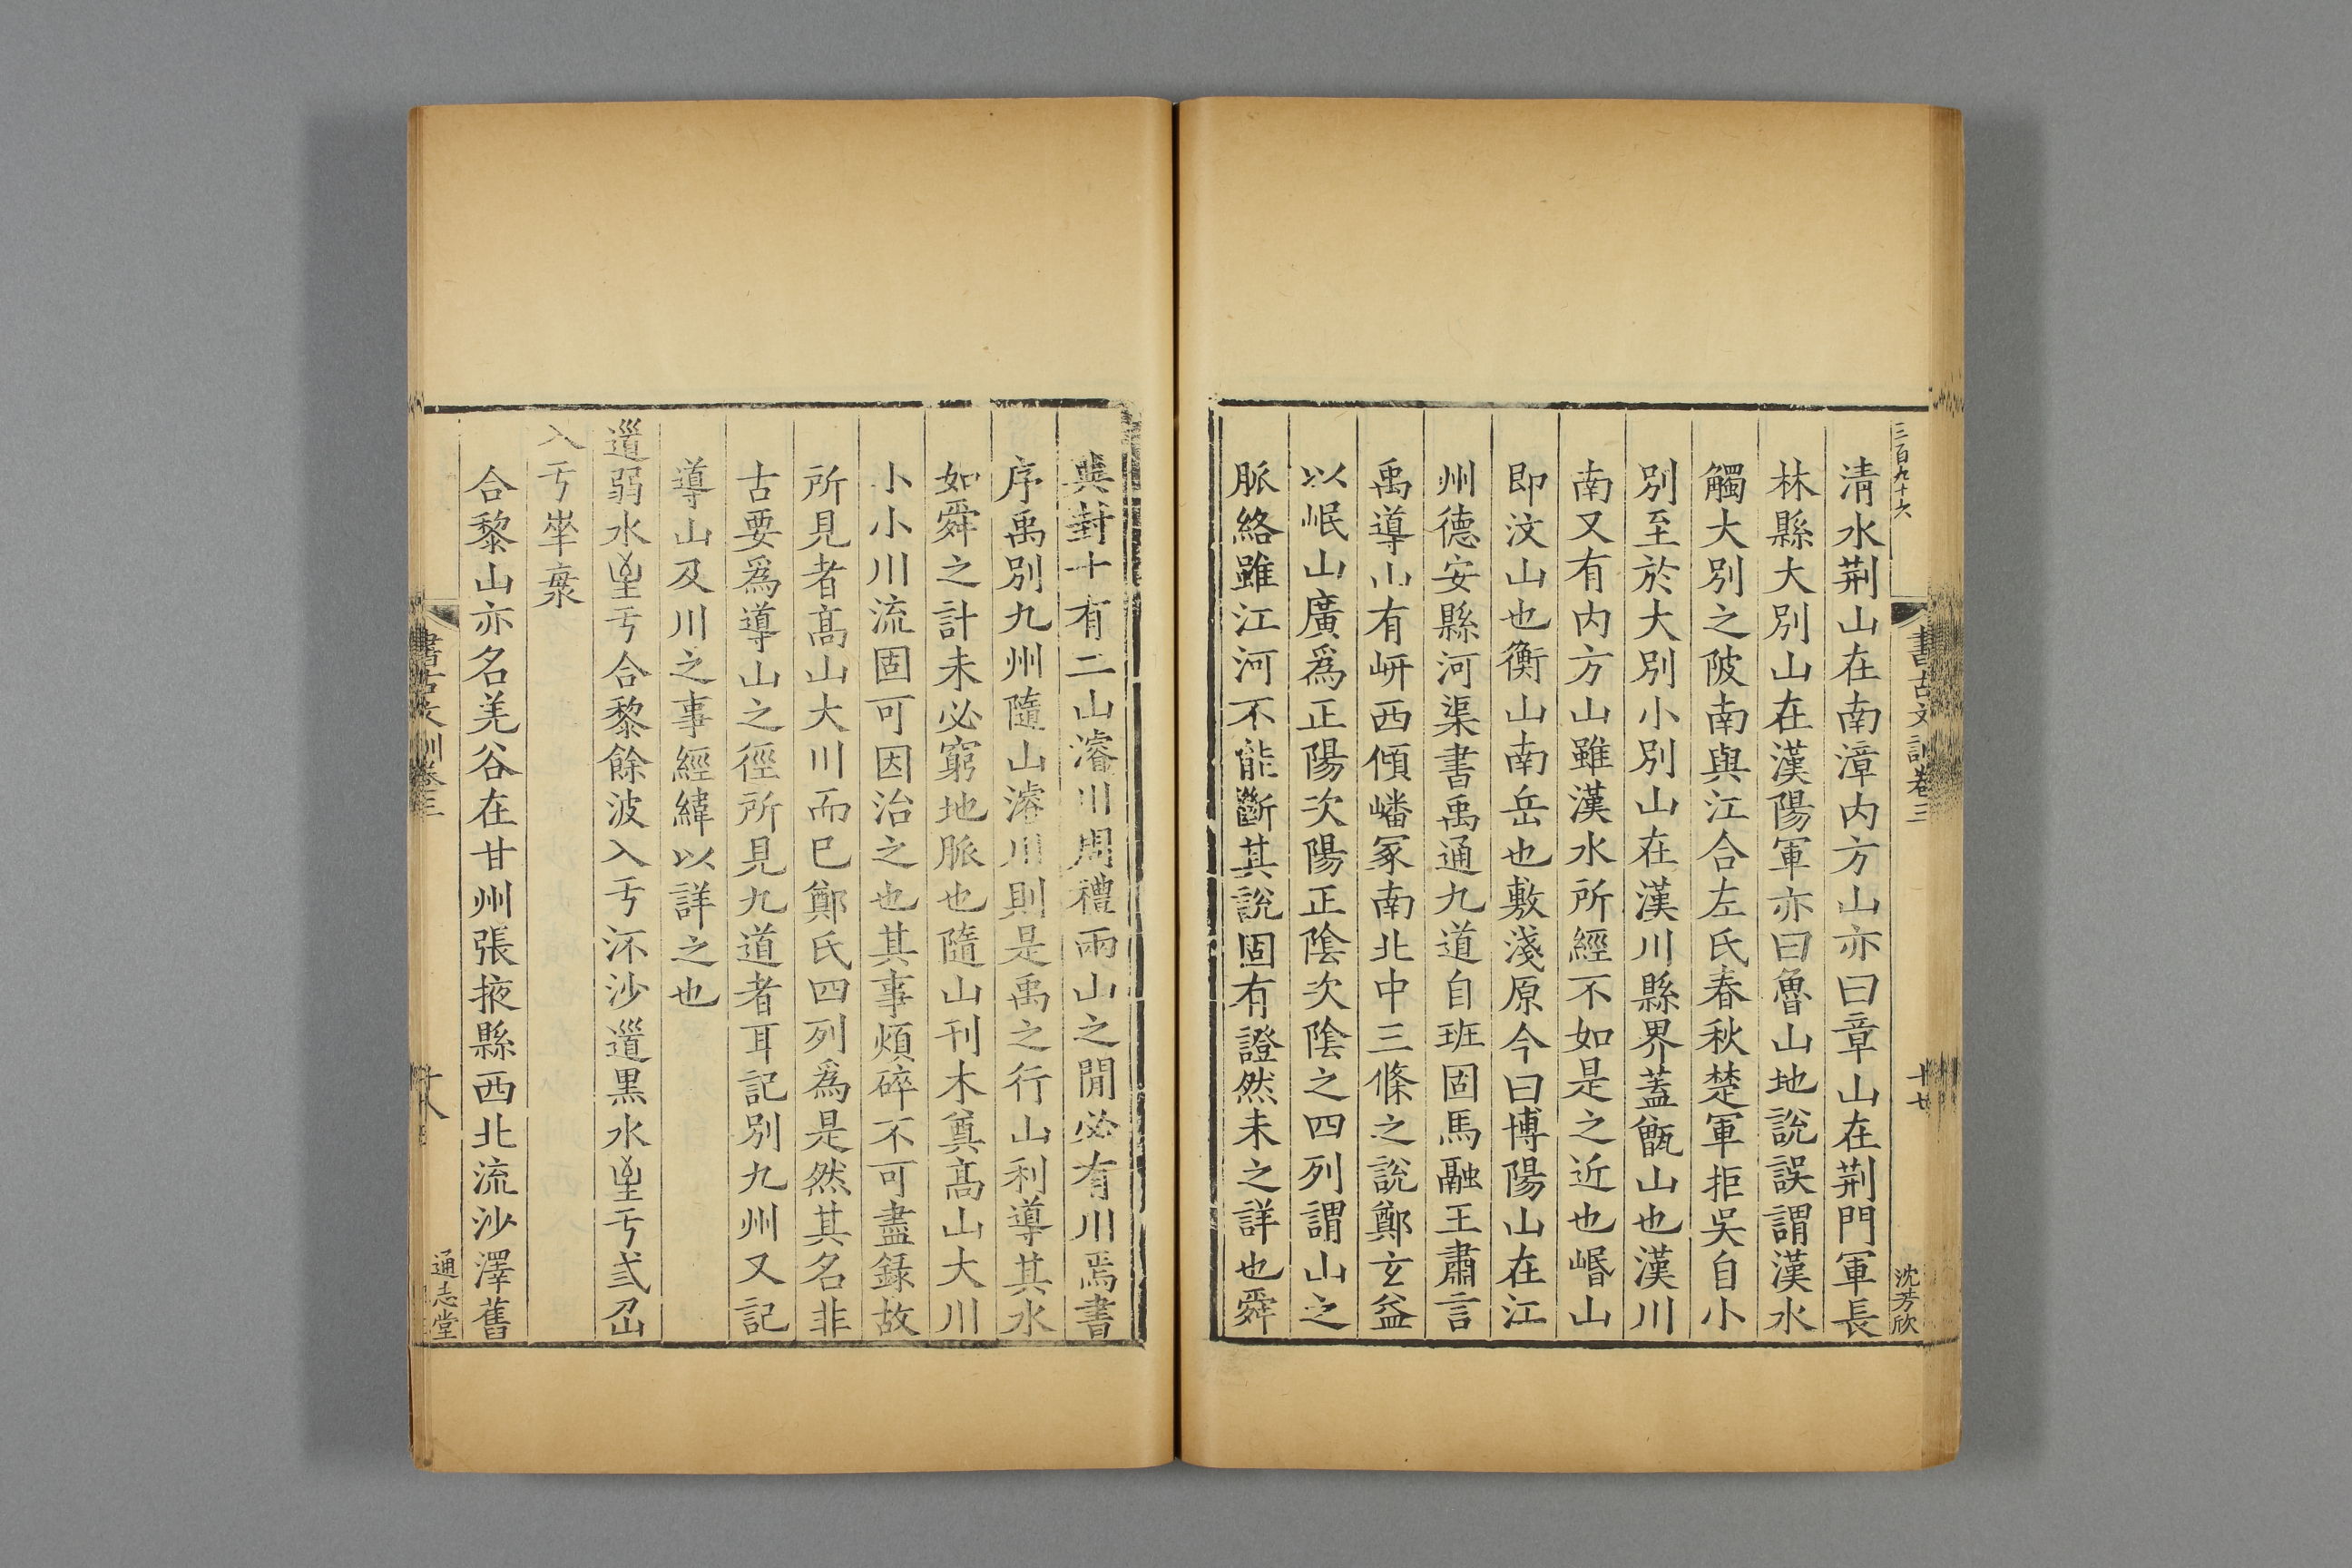 三百九十六
書古文訓卷三
十七
沈芳欣
清水荆山在南漳内方山亦曰章山在荆門軍長
林縣大別山在漢陽軍亦曰魯山地說誤謂漢水
觸大別之陂南與江合左氏春秋楚軍拒吳自小
別至於大別小別山在漢川縣界蓋甑山也漢川
南又有内方山雖漢水所經不如是之近也㟭山
即汶山也衡山南岳也敷淺原今曰博陽山在江
州德安縣河渠書禹通九道自班固馬融王肅言
禹導山有岍西傾嶓冢南北中三條之說鄭玄益
以岷山廣爲正陽次陽正陰次陰之四列謂山之
脈絡雖江河不能斷其說固有證然未之詳也舜
典封十有二山濬川周禮兩山之閒必有川焉書
序禹別九州隨山濬川則是禹之行山利導其水
如舜之計未必窮地脈也隨山刊木奠高山大川
小小川流固可因治之也其事煩碎不可盡錄故
所見者高山大川而已鄭氏四列爲是然其名非
古要爲導山之徑所見九道者耳記別九州又記
導山及川之事經緯以詳之也
𨗓弱水𡴞亐合黎餘波入亐沶沙𨗓黒水𡴞亐弎𡵆
入亐𡴞𣶒
合黎山亦名羌谷在甘州張掖縣西北流沙澤舊
書古文訓卷三
十八
通志堂